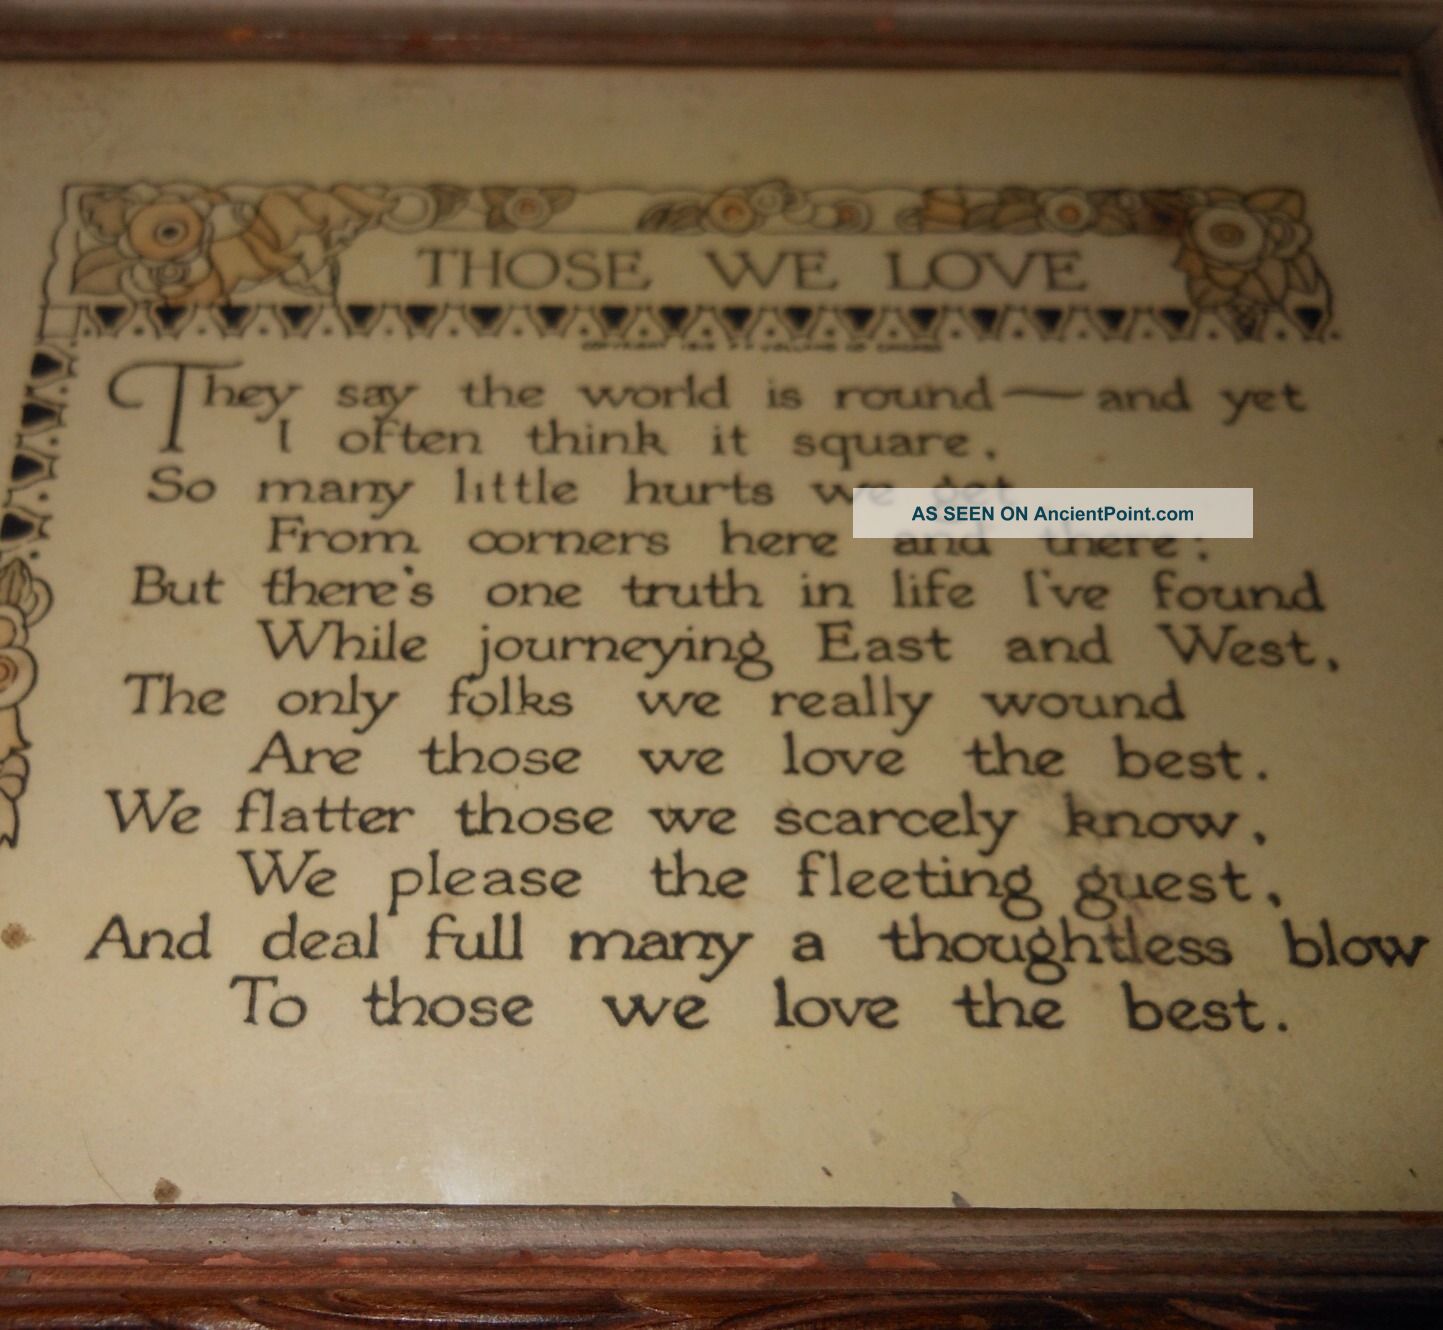 THOSE WE LOVE
They say the world is round — and yet
I often think it square,
So many little hurts we get
From corners here and there:
AS SEEN ON AncientPoint.com
But there's one truth in life I've found
While journeying East and West,
The only folks we really wound
Are those we love the best.
We flatter those we scarcely know,
We please the fleeting guest,
And deal full many a thoughtless blow
To those we love the best.